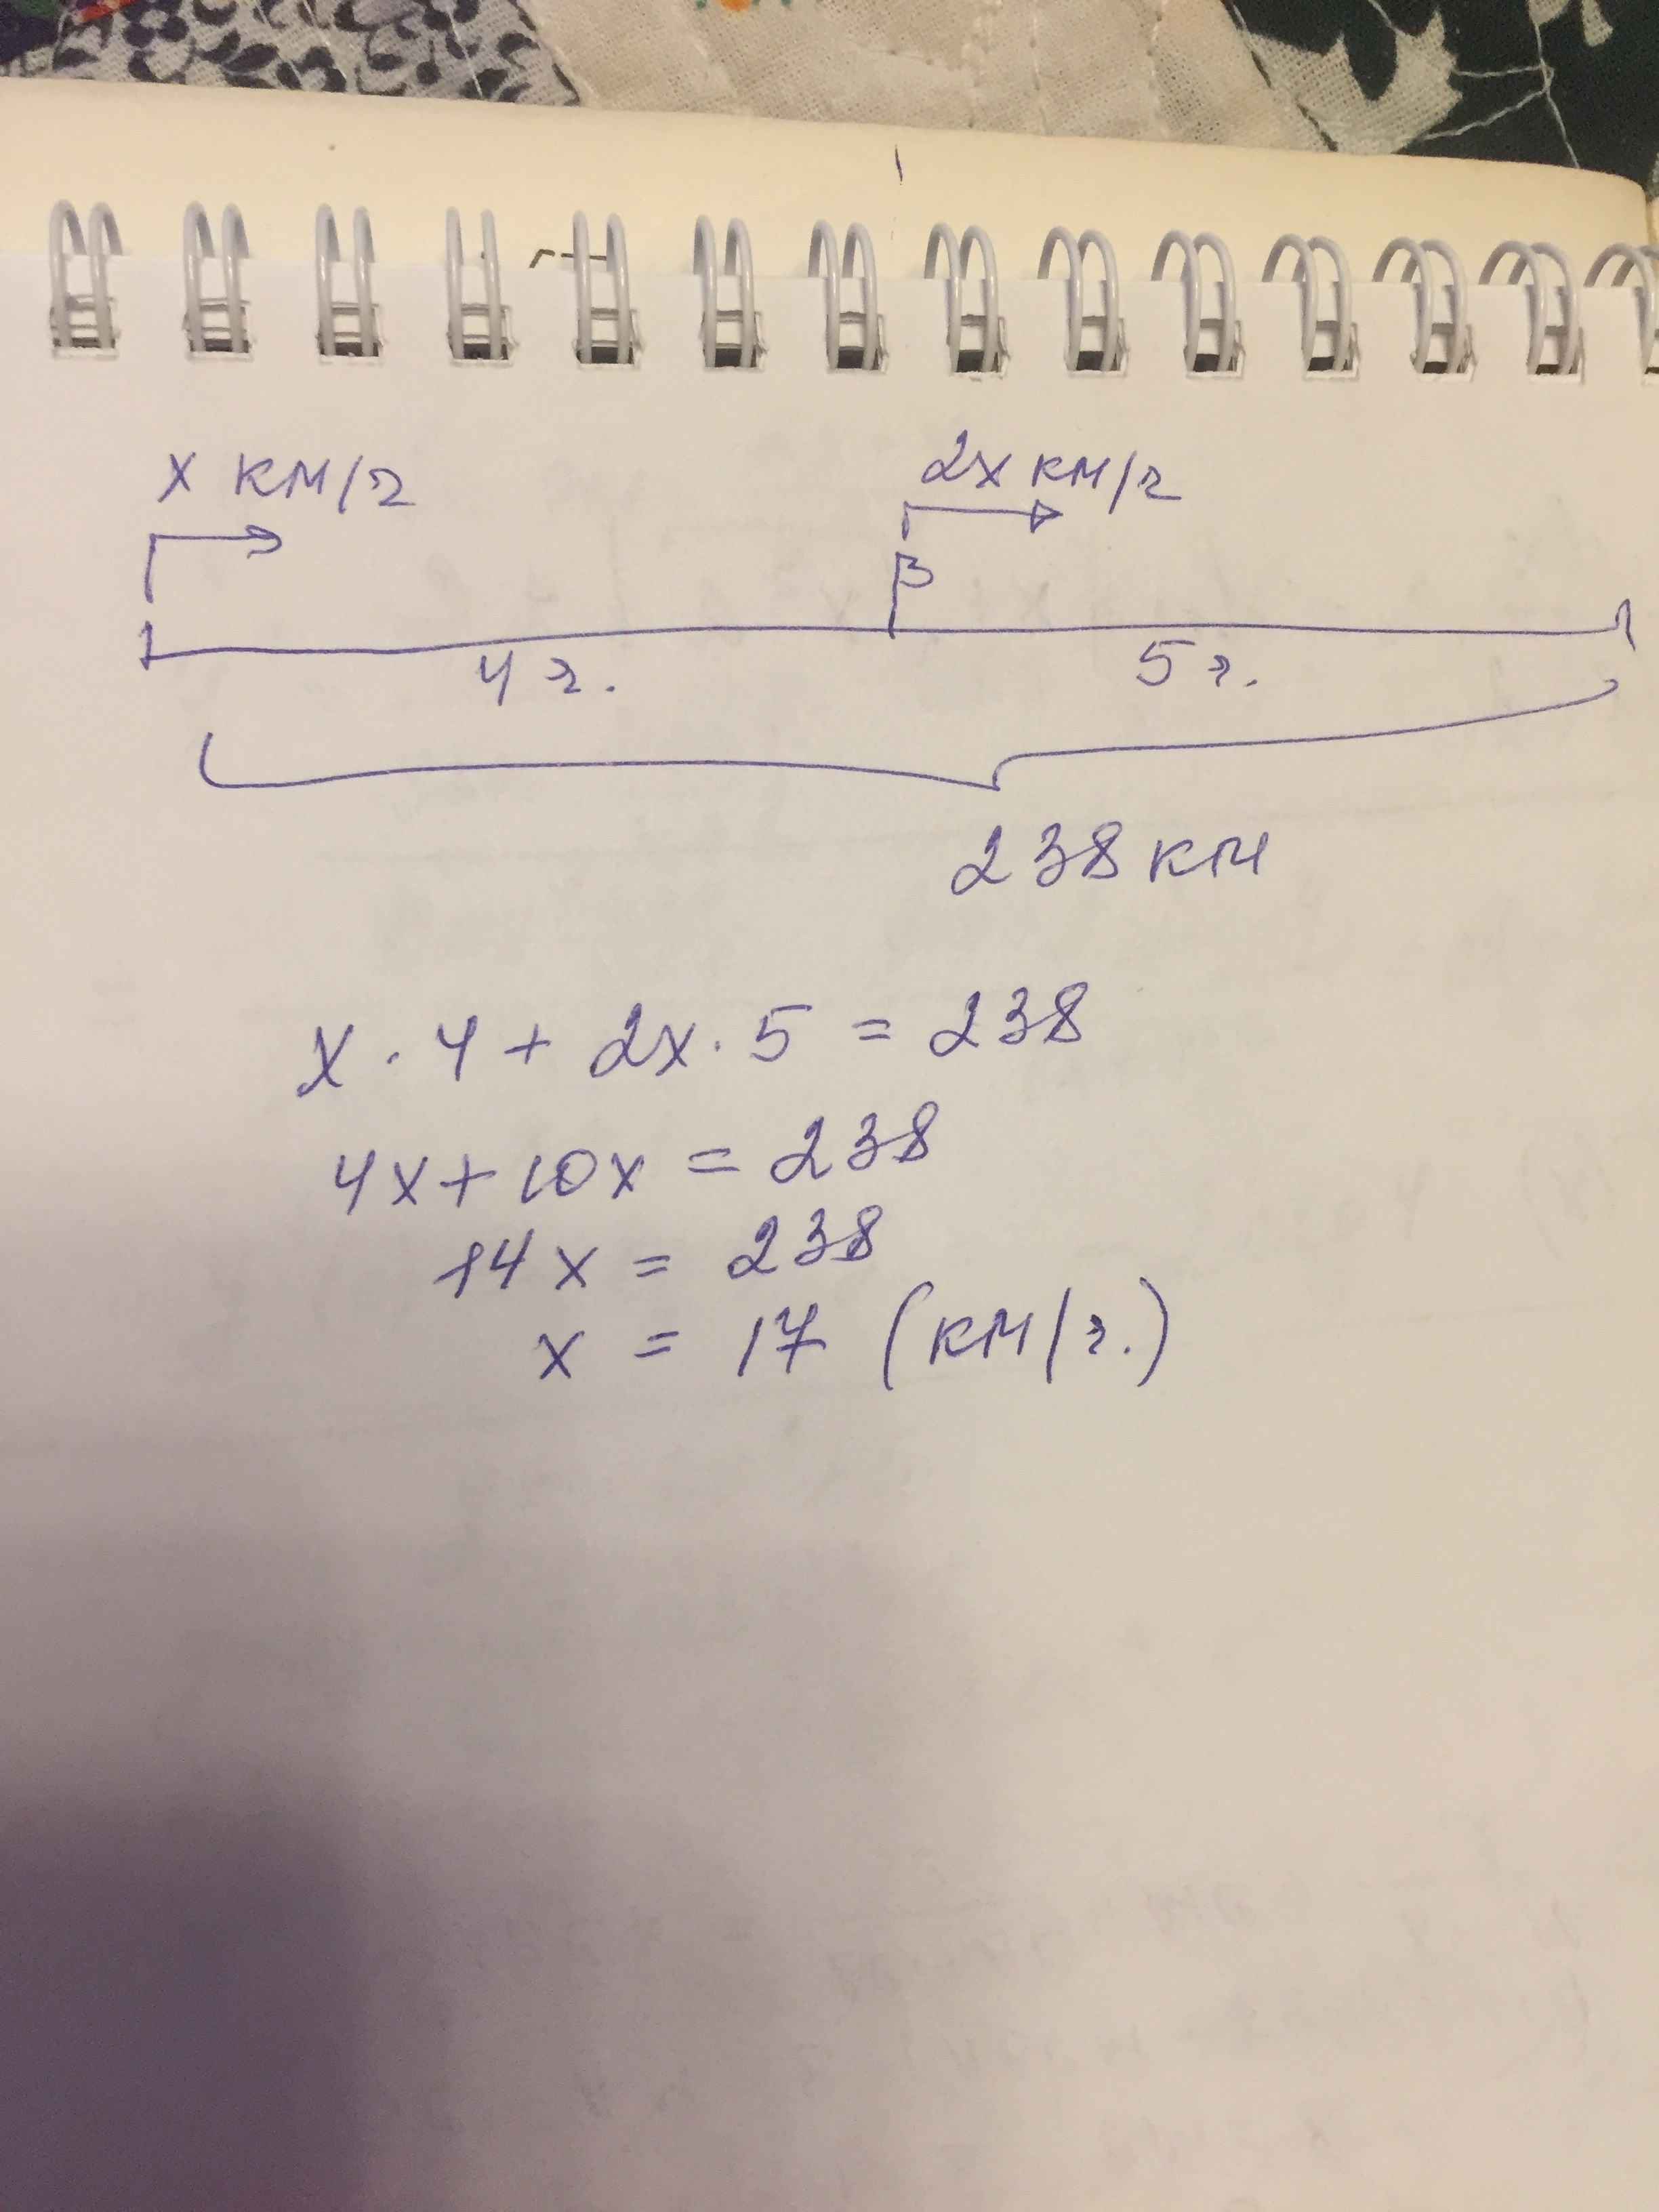 x км/ч
2x км/ч
4 ч.
5 ч.
238 км
x · 4 + 2x · 5 = 238
4x + 10x = 238
14x = 238
x = 17 (км/ч.)